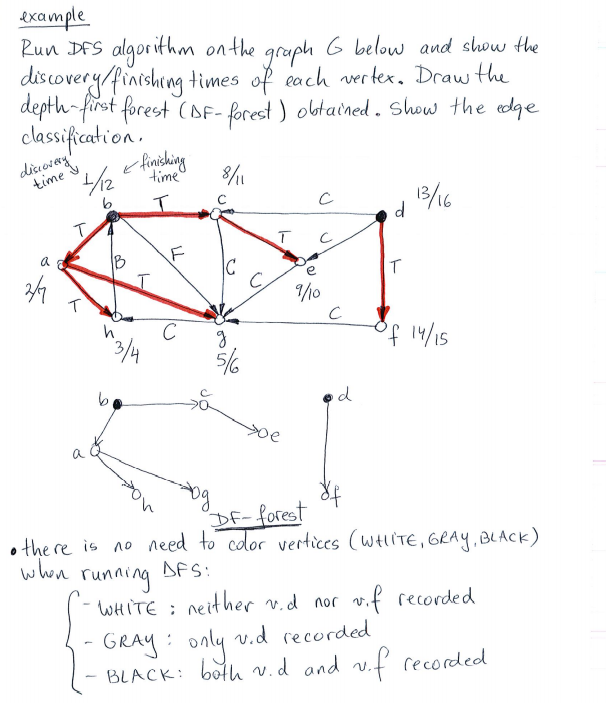 example
Run DFS algorithm on the graph G below and show the
discovery/finishing times of each vertex. Draw the
depth-first forest (DF-forest) obtained. Show the edge
classification.
discovery time
finishing time
1/12
8/11
13/16
b
T
c
C
d
T
T
C
a
B
F
C
T
T
e
C
2/7
T
9/10
C
h
C
g
f 14/15
3/4
5/6
b
c
d
e
a
h
g
f
DF-forest
• there is no need to color vertices (WHITE, GRAY, BLACK)
when running DFS:
- WHITE : neither v.d nor v.f recorded
- GRAY : only v.d recorded
- BLACK: both v.d and v.f recorded